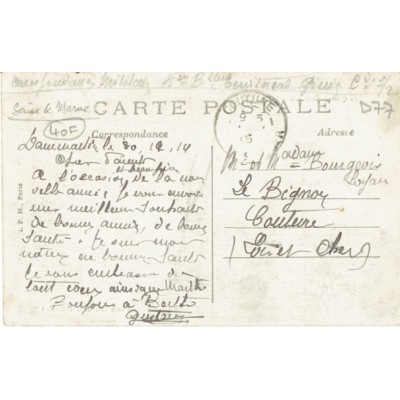 Correspondance Militaire 
Territorial Génie
Seine et Marne
CARTE POSTALE
D77
40F
Correspondance
Adresse
Dammartin le 30, 12, 14
A l'occasion de la nou
velle année je vous envoie
mes meilleurs souhaits
de bonne année, de bonne
Santé. Je suis moi
en bonne Santé
Je vous embrasse de
tout cœur ainsi que Marthe
Bonjour à Berthe
Mr et Madame Bourgeois
Le Bignon
Couture
Loir et Cher
J. F. M., Paris